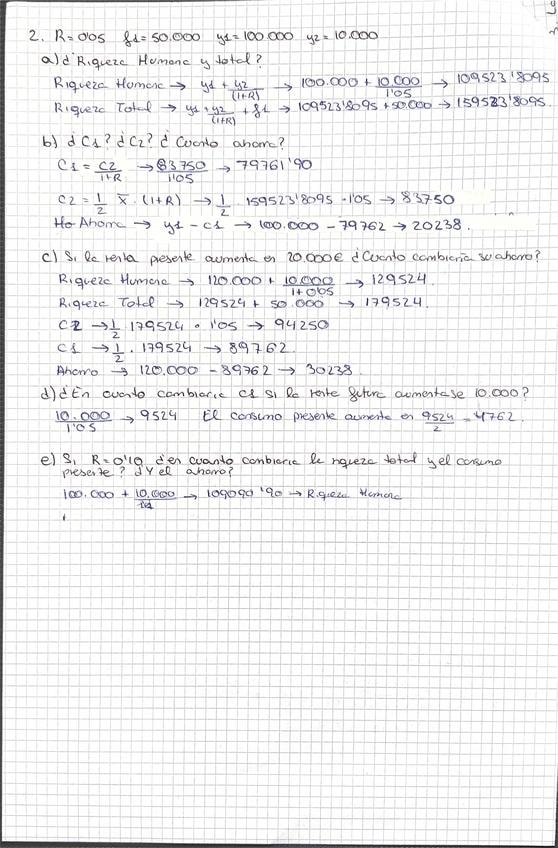 2. R=0'05 f1=50.000 y1=100.000 y2=10.000
a) ¿Riqueza Humana y total?
Riqueza Humana → y1 + y2/(1+R) → 100.000 + 10.000/1'05 → 109523'8095
Riqueza Total → y1 + y2/(1+R) + f1 → 109523'8095 + 50.000 → 159523'8095.
b) ¿C1? ¿C2? ¿Cuanto ahorra?
C1 = C2/1+R → 83750/1'05 → 79761'90
C2 = 1/2 X̄ · (1+R) → 1/2 159523'8095 · 1'05 → 83750
Ahorra → y1 - c1 → 100.000 - 79762 → 20238.
c) Si la renta presente aumenta en 20.000€ ¿Cuanto cambiaria su ahorro?
Riqueza Humana → 120.000 + 10.000/1+0'05 → 129524.
Riqueza Total → 129524 + 50.000 → 179524.
C2 → 1/2 · 179524 · 1'05 → 94250
C1 → 1/2 · 179524 → 89762.
Ahorro → 120.000 - 89762 → 30238.
d) ¿En cuanto cambiaria C1 si la renta futura aumentase 10.000?
10.000/1'05 → 9524 El consumo presente aumenta en 9524/2 = 4762.
e) Si R=0'10 ¿en cuanto cambiaria la riqueza total y el consumo
presente? ¿Y el ahorro?
100.000 + 10.000/1'1 → 109090'90 → Riqueza Humana